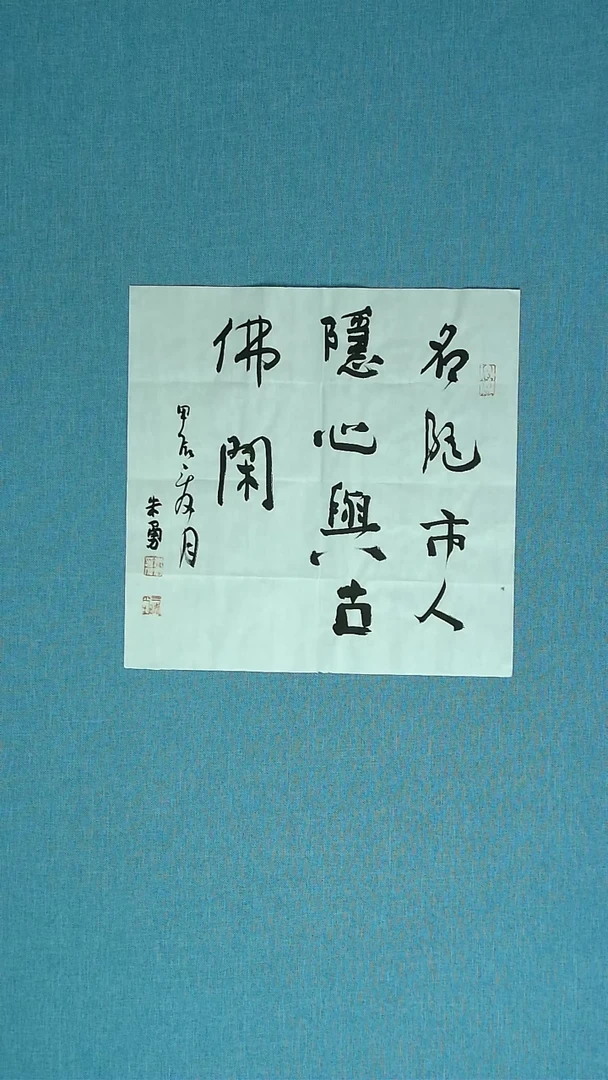 名随市人
隱心與古
佛閑
甲辰 月
朱勇